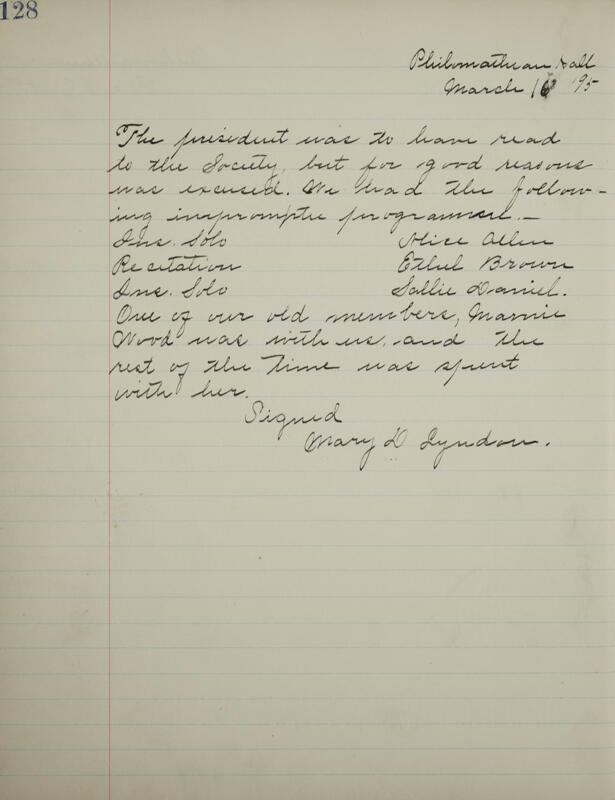 128
Philomathean Hall
March 16 '95
The president was to have read
to the Society, but for good reasons
was excused. We had the follow-
ing impromptu programme.—
Ins. Solo Alice Allen
Recitation Ethel Brown
Ins. Solo Sallie Daniel.
One of our old members, Mamie
Wood was with us, and the
rest of the time was spent
with her.
Signed
Mary D Lyndon.